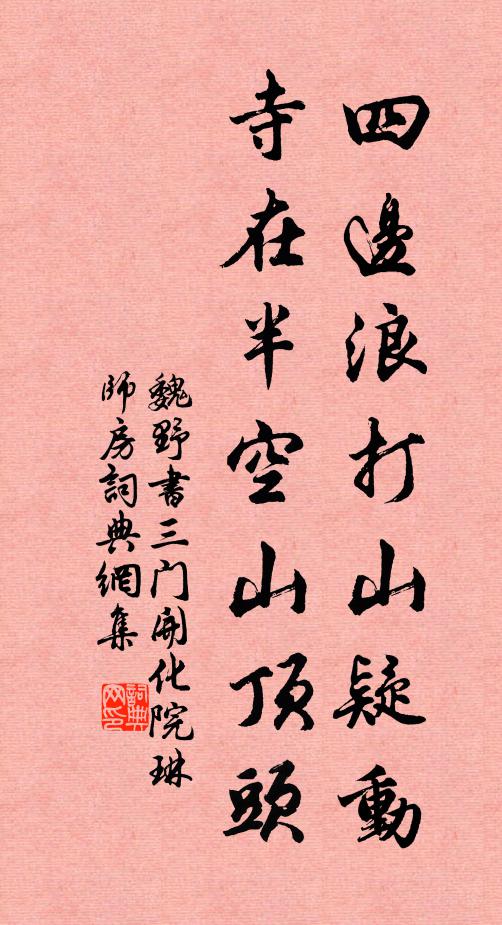 四邊浪打山疑動
寺在半空山頂頭
魏野書三门開化院琳
師房詞典網集
詞典網印